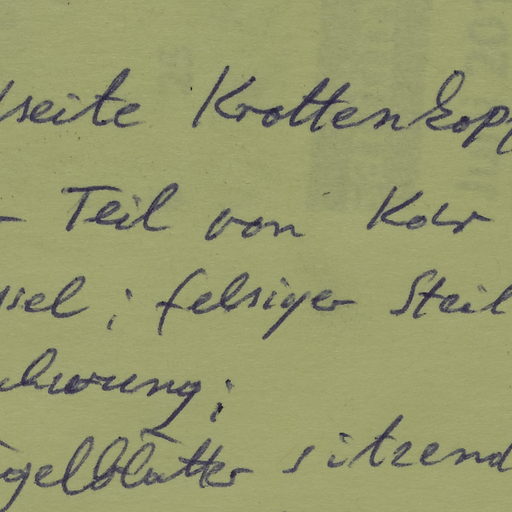 seite Krottenkopf
Teil von Kar
ssel; felsiger Steil
ahrung;
ügelblätter sitzend